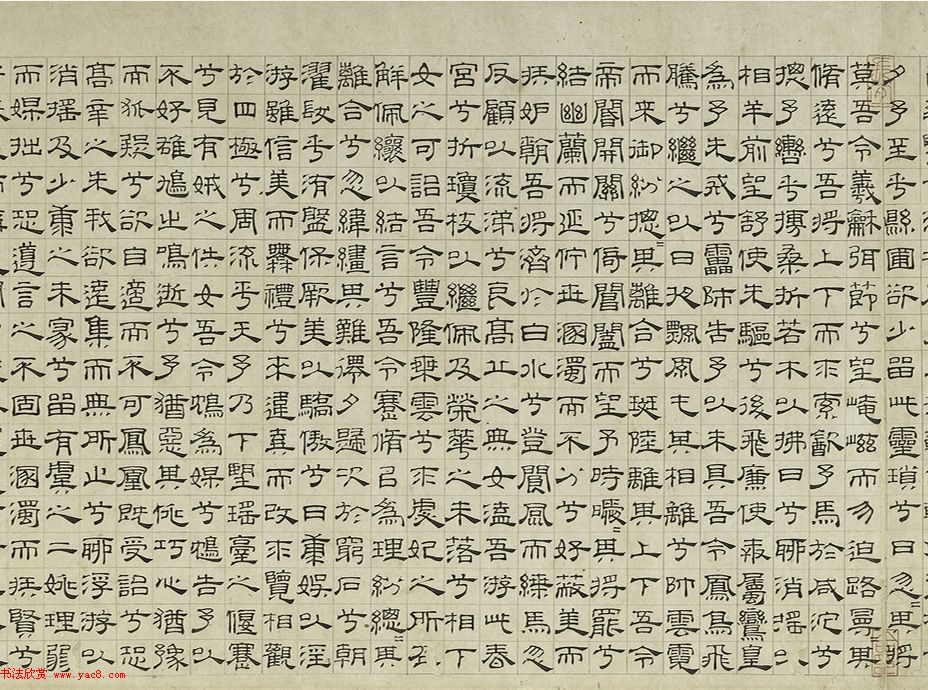 夕予至乎縣圃欲少畱此靈瑣兮日忽=其將
莫吾令羲龢弭節兮望崦嵫而勿迫路曼=其
脩遠兮吾將上下而求索飲予馬於咸池兮
摠予轡乎榑桑折若木以拂日兮聊消搖以
相羊前望舒使先驅兮後飛廉使奔屬鸞皇
為予先戒兮靁師告予以未具吾令鳳鳥飛
騰兮繼之以日夜飄風屯其相離兮帥雲霓
而来御紛摠=其離合兮斑陸離其上下吾令
帝閽開關兮倚閶闔而望予時曖=其將罷兮
結幽蘭而延佇丗溷濁而不分兮好蔽美而
嫉妒朝吾將濟於白水兮登閬風而緤馬忽
反顧以流涕兮哀高丘之無女溘吾游此春
宮兮折瓊枝以繼佩及榮華之未落兮相下
女之可詒吾令豐隆乘雲兮求虙妃之所在
解佩纕以結言兮吾令蹇脩以為理紛總=其
離合兮忽緯繣其難遷夕歸次於窮石兮朝
濯髮乎洧盤保厥美以驕傲兮日康娛以淫
游雖信美而無禮兮來違棄而改求覽相觀
於四極兮周流乎天予乃下望瑤臺之偃蹇
兮見有娀之佚女吾令鴆為媒兮鴆告予以
不好雄鳩之鳴逝兮予猶惡其佻巧心猶豫
而狐疑兮欲自適而不可鳳凰既受詒兮恐
高辛之先我欲遠集而無所止兮聊浮游以
消搖及少康之未家兮畱有虞之二姚理弱
而媒拙兮恐導言之不固丗溷濁而嫉賢兮
书法欣赏 www.yac8.com